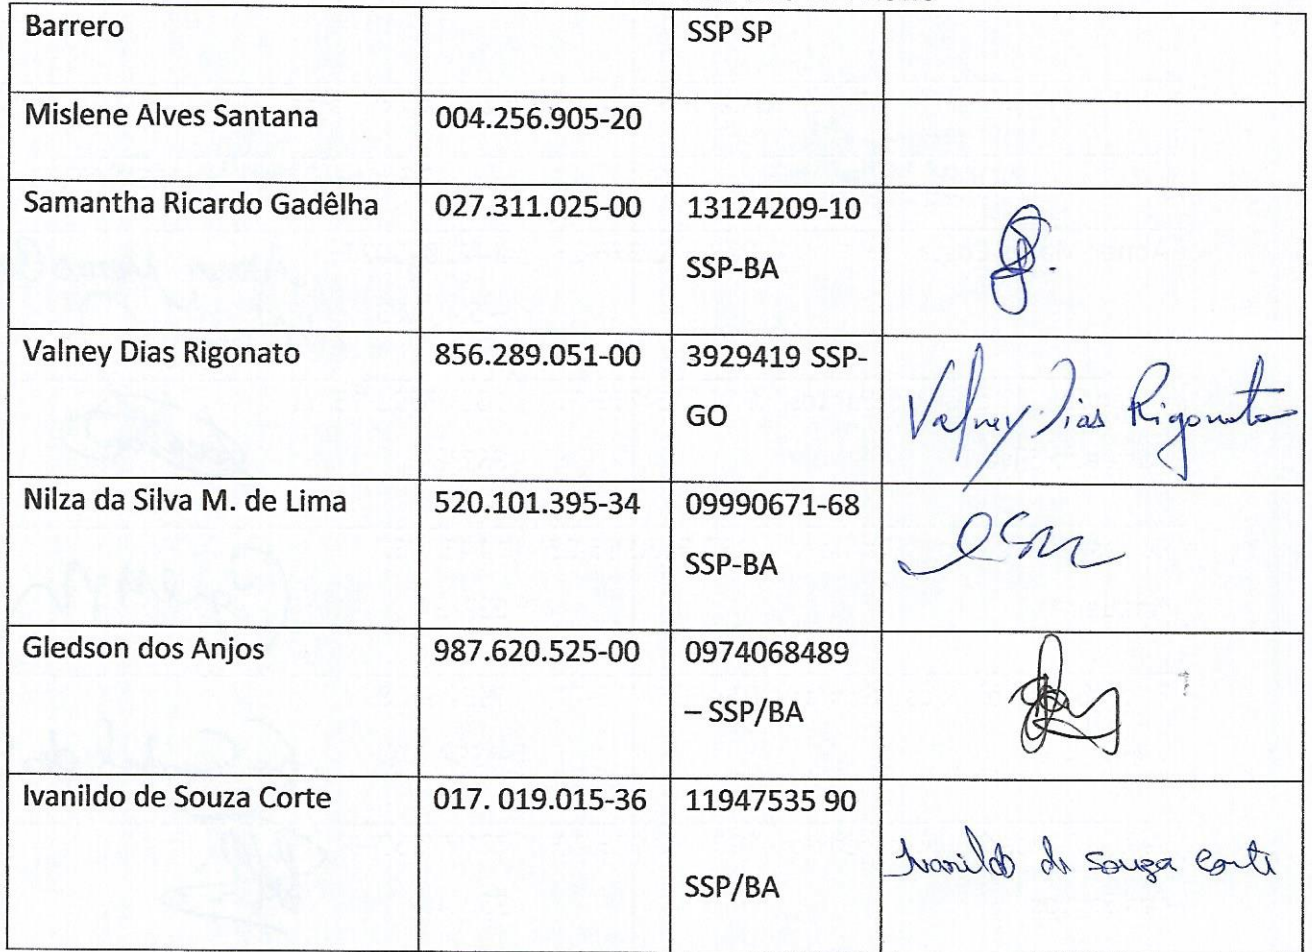 Barrero SSP SP
Mislene Alves Santana 004.256.905-20
Samantha Ricardo Gadêlha 027.311.025-00 13124209-10
SSP-BA
Valney Dias Rigonato 856.289.051-00 3929419 SSP-
GO Valney Dias Rigonato
Nilza da Silva M. de Lima 520.101.395-34 09990671-68
SSP-BA
Gledson dos Anjos 987.620.525-00 0974068489
– SSP/BA
Ivanildo de Souza Corte 017. 019.015-36 11947535 90
Ivanildo de Souza Corte
SSP/BA